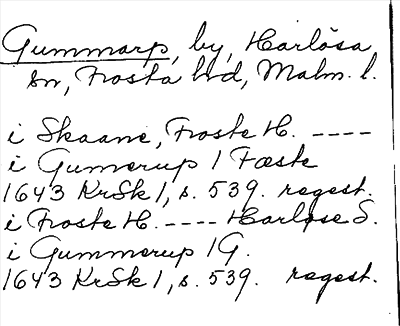 Gummarp, by, Harlösa
sn, Frosta hd, Malm. l.
i Skaane, Froste H. ----
i Gumerup 1 Fæste
1643 KrSk 1, s. 539. regest.
i Froste H. ---- Harløse S.
i Gummerup 1 G.
1643 KrSk 1, s. 539. regest.